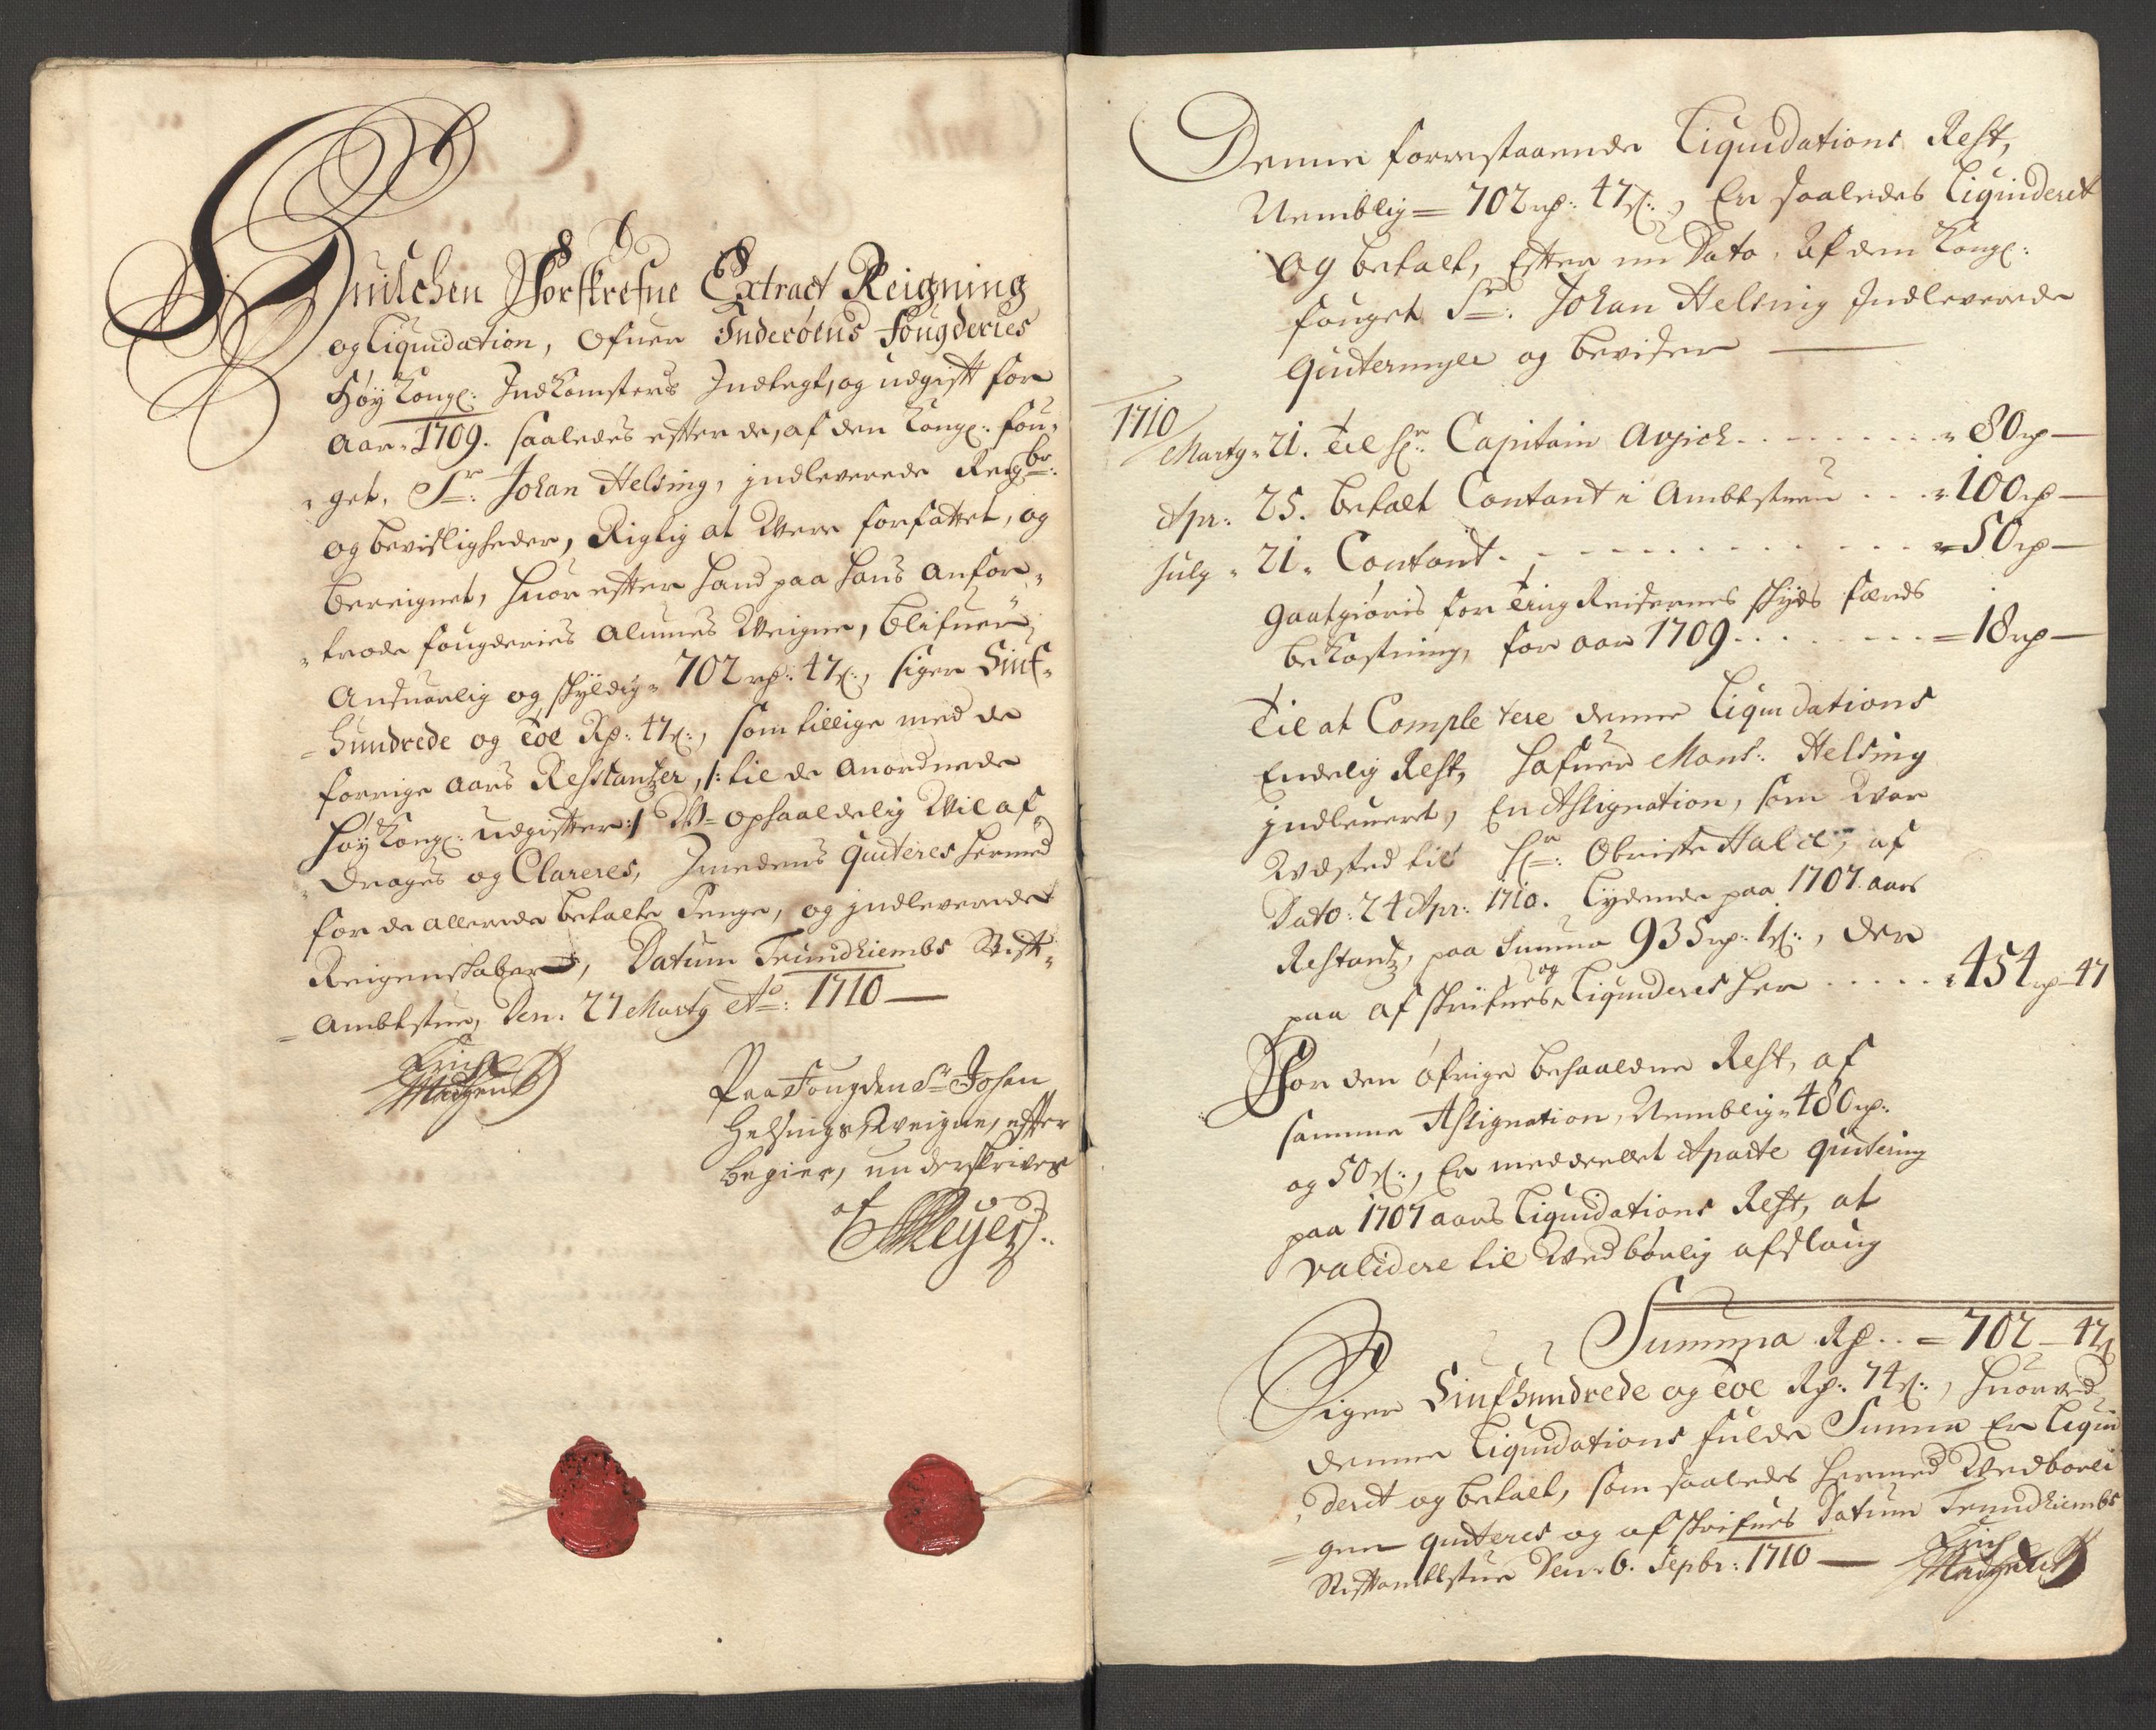 Huilchen Forskrefne Extract Reigning
og Liquidation, ofuer Inderøens Fougderies
Høy Kongl: Indkomsters Indtegt, og udgift for
Aar 1709. saaledes efter de, af den Kongl: fou-
get, Sr: Johan Helsing, indleverede Reigbr:
og bevisligheder, Rigtig at Were forfattet, og
bereignet, huor efter hand paa hans anfor-
trode fougderies Almues Weigne, blifuer
Ansuarlig og skyldig 702 rp: 47 s:, siger Siuf-
hundrede og toe Rp: 47 s:, som tillige med de
forrige aars Restantzer, /: til de anordnede
høy Kongl: udgifter :/ W-ophaaldelig Wil af
drages og Clareres, Imedens quiteres hermed
for de allerede betalte Penge, og indleverede
Reigenskaber, Datum Trundhiembs Stift-
Ambtstue, Den 27 Marty Ao: 1710
Paa Fougden Sr Johan
Helsings Weigne, efter
begier, underskrives
af
Meyer
Denne forrestaaende Liquidations Rest,
Nemblig 702 rp: 47 s:, Er saaledes Liquideret
og betalt, Efter nu Dato, af den Kongl:
fouget Sr: Johan Helsing Indleverede
quiteringer og beviser
1710
Marty 21. til Hr: Capitain .... 80 rp
Apr: 25. betalt Contant i Ambtstuen ... 100 rp
July 21. Contant .... 50 rp
gaatgiøris for ting Reisernes skyds færds
bekostning, for aar 1709 .... 18 rp
Til at Completere denne Liquidations
Endelig Rest, hafuer Mons: Helsing
indleueret, En Assignation, som Var
Udsted til Hr: Obriste, af
Dato: 24 Apr: 1710. lydende paa 1707 aars
Restantz, paa Summa 935 rp: 1 s:, der
paa af skrifues og Liquideres her ..... 454 rp 47
For den øfrige behaaldne Rest, af
samme Assignation, Nemblig 480 rp:
og 50 s:, Er meddeelet Aparte quitering
paa 1707 aars Liquidations Rest, at
validere til Wedbørlig afslaug
Summa Rp .. 702 - 47 s
Siger Siufhundrede og toe Rp: 74 s:, huorved
denne Liquidations fulde Summa Er liqui
deret og betalt, som saaledes hermed Wedbørli
gen quiteres og afskrifues Datum Trundhiembs
Stiftambtstue Den 6. Sepbr: 1710